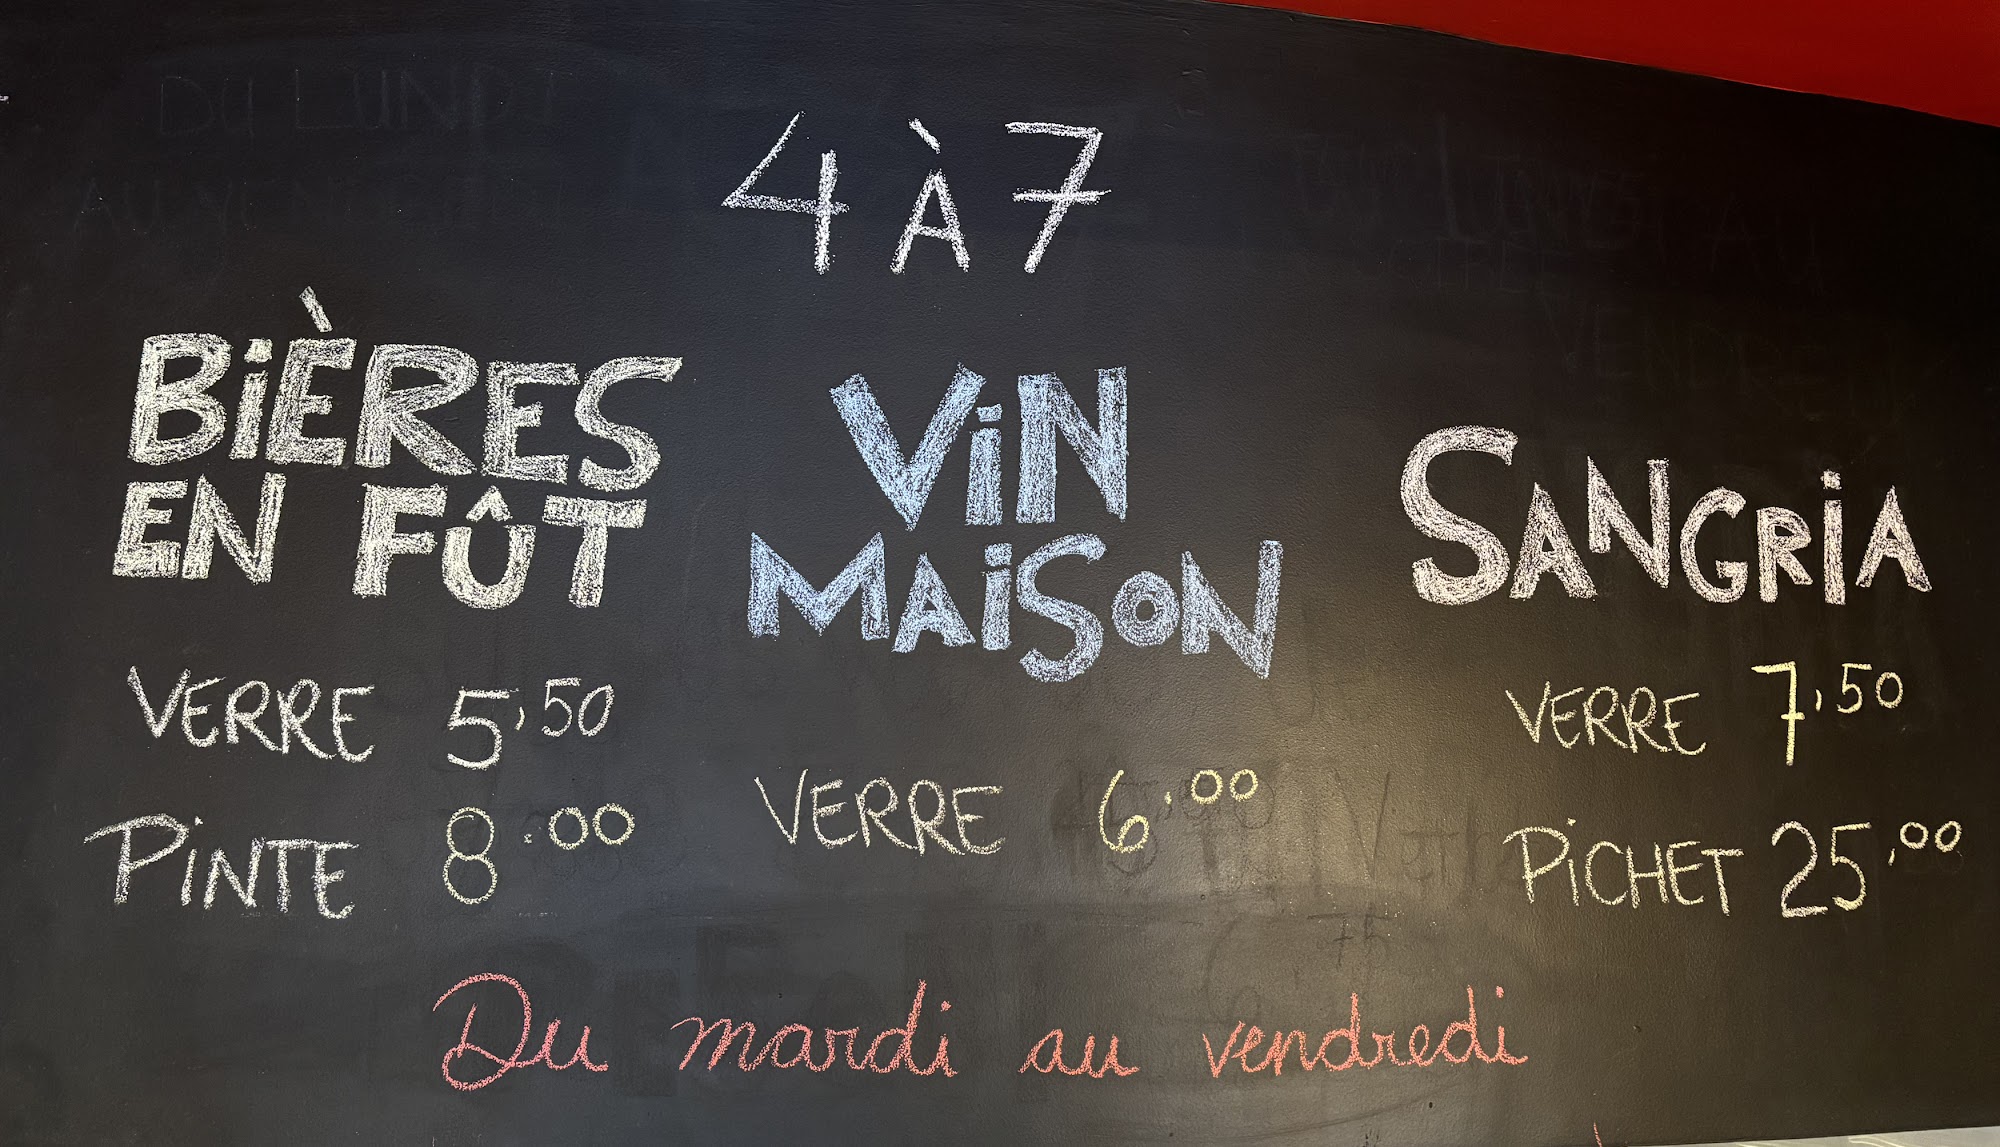 4 À 7
BIÈRES
EN FÛT
VERRE 5,50
PINTE 8.00
VIN
MAISON
VERRE 6.00
SANGRIA
VERRE 7,50
PICHET 25,00
Du mardi au vendredi
DU LUNDI